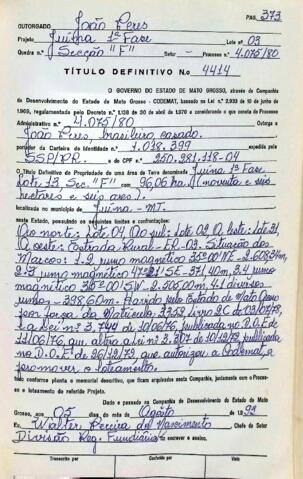 PAG. 373
OUTORGADO João Peres
Projeto Juína 1ª Fase Lote nº 03
Quadra nº Secção "F" Setor - Processo nº 4.075/80
TÍTULO DEFINITIVO N.o 4414
O GOVERNO DO ESTADO DE MATO GROSSO, através da Companhia de
Desenvolvimento do Estado de Mato Grosso - CODEMAT, baseado na Lei n.º 2.939 de 10 de junho de 1969,
regulamentada pelo Decreto n.º 1.138 de 30 de abril de 1970 e considerando o que consta do Processo
Administrativo n.º 4.075/80 Outorga a
João Peres, brasileiro, casado.
portador da Carteira de Identidade n.º 1.018.399 expedida pela
SSP/PR. e de CPF nº 250.981.118-04
O Título Definitivo de Propriedade de uma área de Terra denominada Juína 1ª Fase.
Lote 13 Sec. "F" com 96,06 ha (noventa e seis
hectares e seis ares).
localizada no município de Juína - MT.
neste Estado, possuindo os seguintes limites e confrontações:
Ao norte: Lote 04. Ao sul: Lote 02. A leste: Lote 21.
A oeste: Estrada Rural - ER-03. Situação dos
Marcos: 1.2 rumo magnético 35°00'NE
rumo magnético 47°21'SE - 371,40m, 3.4 rumo
magnético 35°00'SW - 2.505,00m, 4.1 divisor
398,60m. Havido pelo Estado de Mato Grosso
por força da Matrícula 3.352 Livro 2C de 03/07/78,
e a Lei nº 3.744 de 10/06/76, publicada no D.O.E. de
11/06/76, que altera a lei nº 3.307 de 10/12/72, publicada
no D.O.E. de 26/12/72, que autorizou a Codemat, a
promover o loteamento.
tudo conforme planta e memorial descritivo, que ficam arquivados nesta Companhia, juntamente com o Processo
e loteamento do referido Projeto.
Dado e passado na Companhia de Desenvolvimento do Estado de Mato
Grosso, aos 05 dias do mês de Agosto de 1992
Eu, Walter Pereira do Nascimento
Divisão Reg. Fundiária o escrevi e assino.
Transcrito por Conferido por Visto